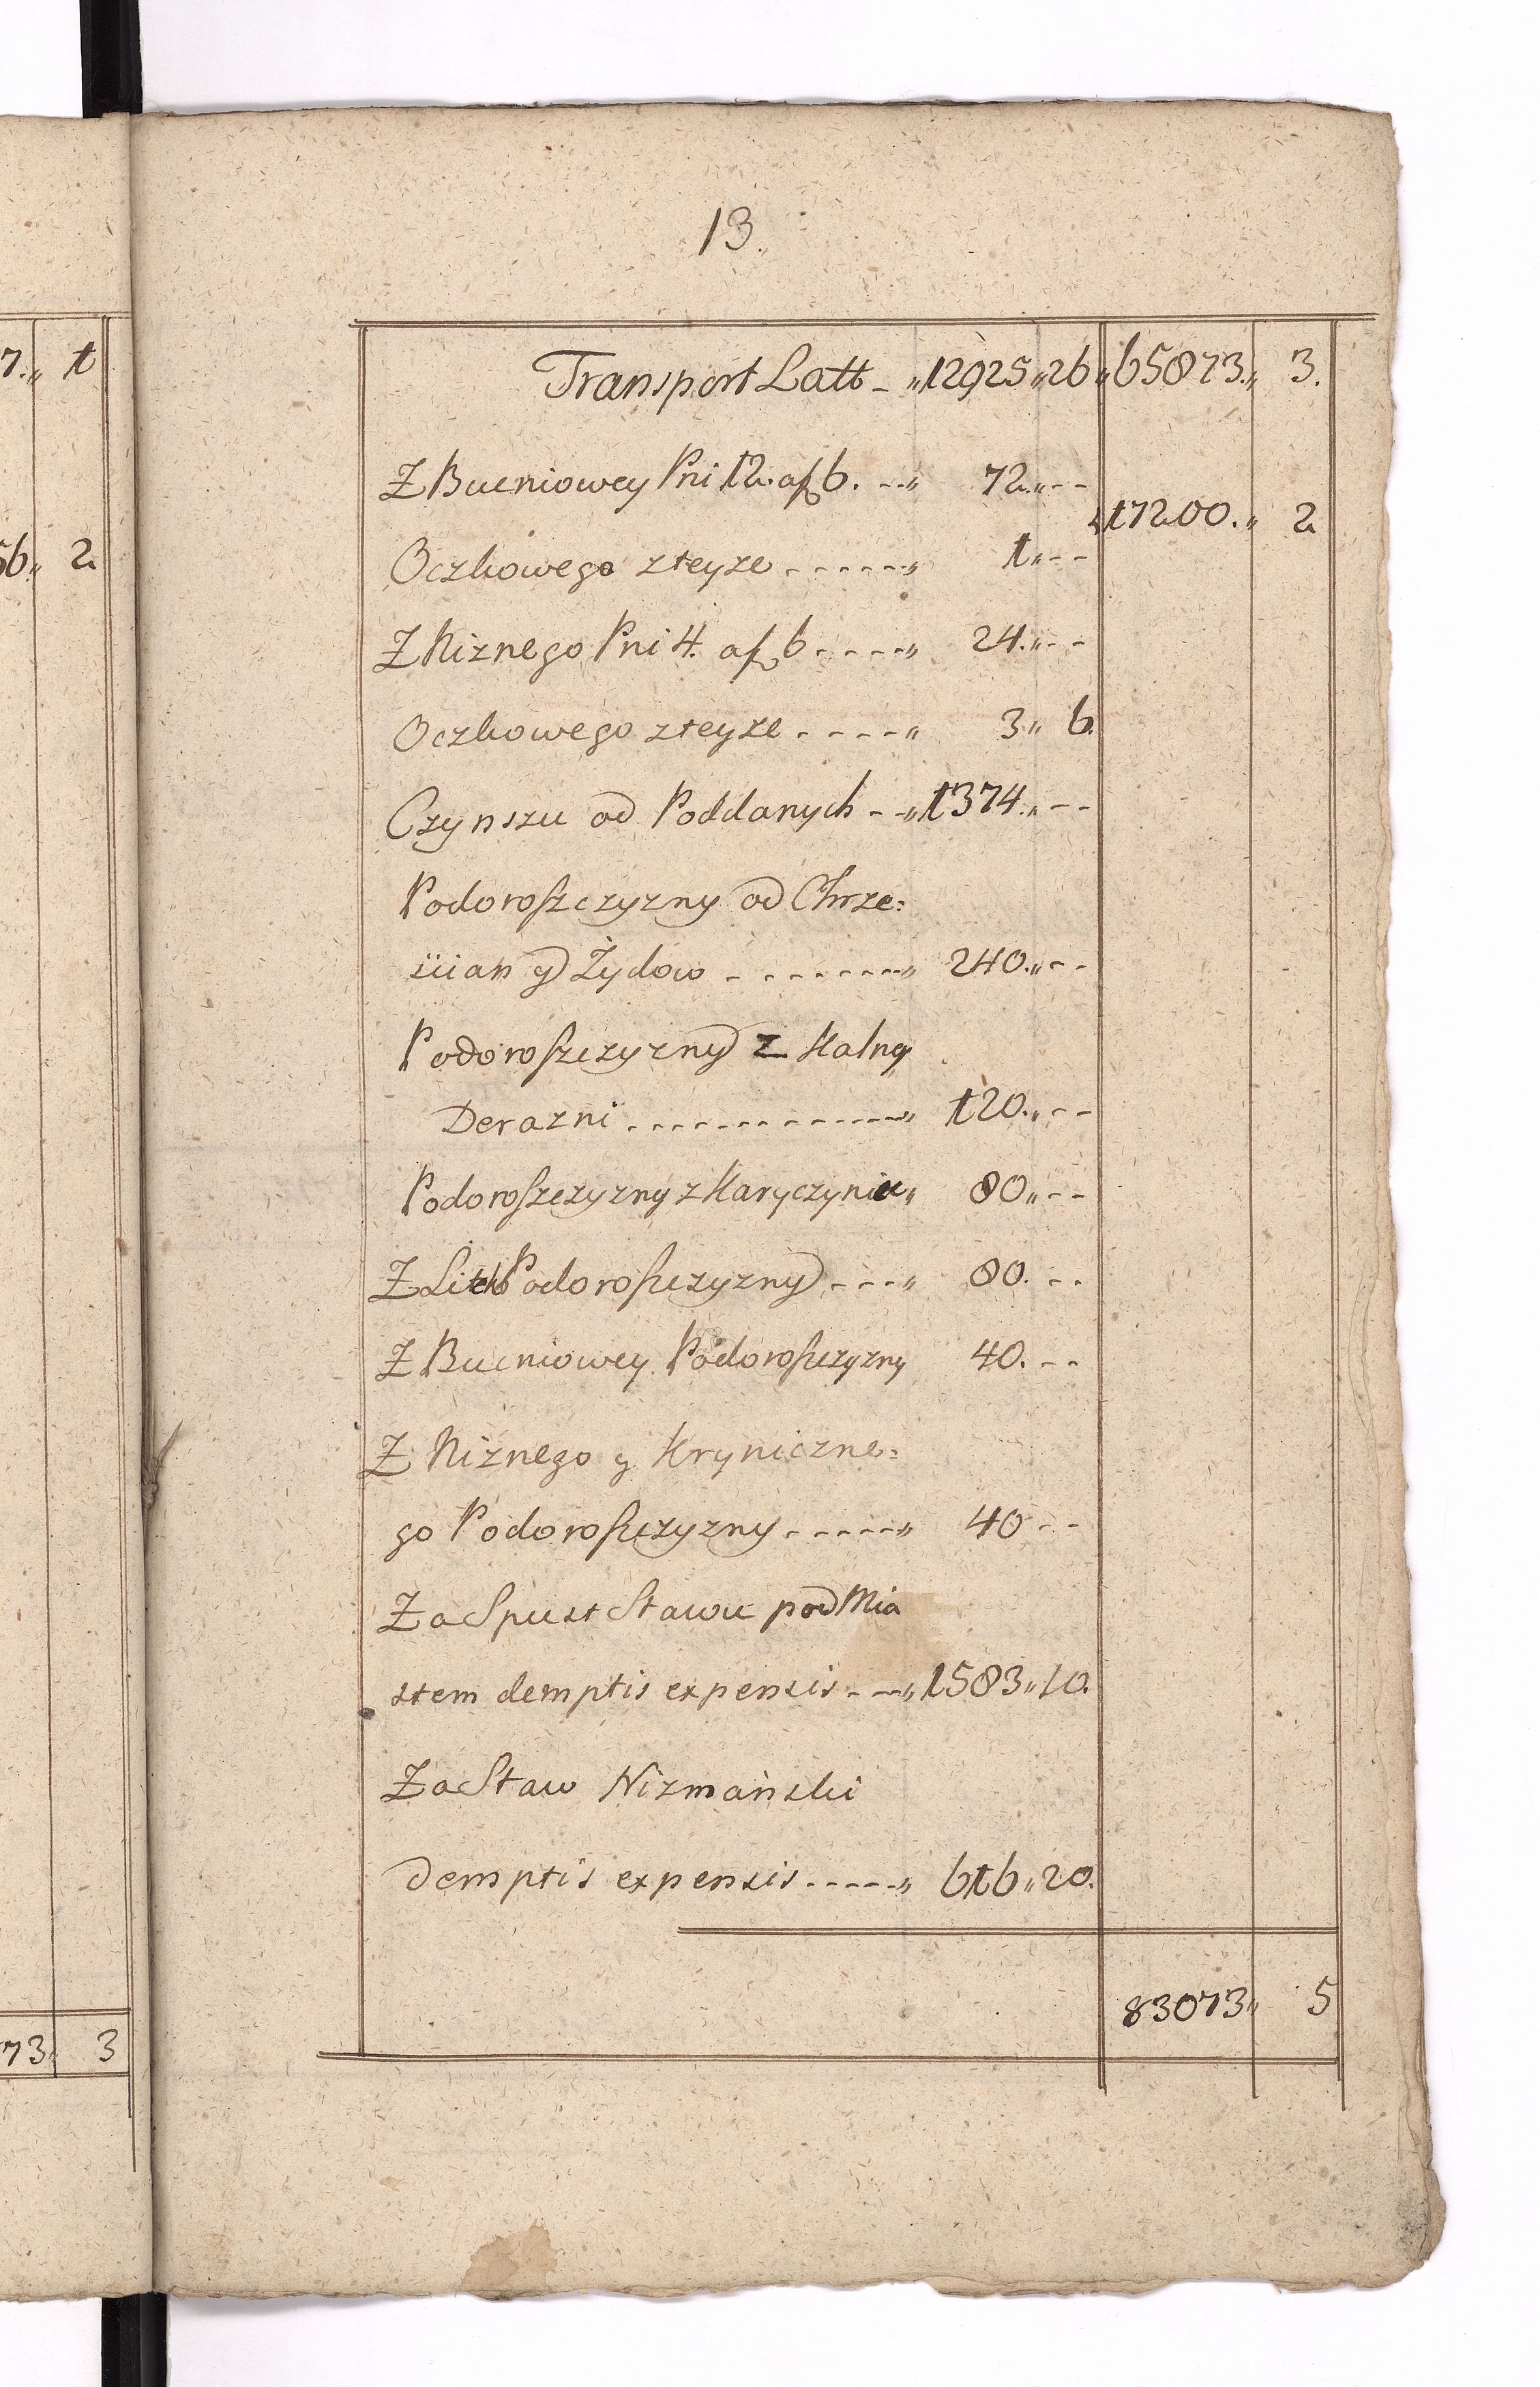 7.„ 1
56„ 2
73 3
13.
Transport Latt - „12925„26„ 65873.„ 3.
Z Bucniowey Pni 12. a f 6. --„ 72.„--
17200.„ 2
Oczkowego zteyze ------„ 1„--
Z Niznego Pni 4. a f 6 -----„ 24.„--
Oczkowego zteyze -----„ 3„ 6.
Czynszu od Poddanych --„1374.„--
Podoroszczyzny od Chrze=
scian y Żydow --------„ 240.„--
Podoroszczyzny z Kalney
Derazni -------------„ 120.„--
Podoroszczyzny z Haryczyniec„ 80„--
Z Litek Podoroszczyzny ----„ 80. --
Z Bucniowey Podoroszczyzny 40. --
Z Niznego y Kryniczne=
go Podoroszczyzny ------„ 40 --
Za Spust Stawu pod Mia
stem demptis expensis ---„1583„10.
Za Staw Nizmański
demptis expensis -----„ 616„20.
83073„ 5